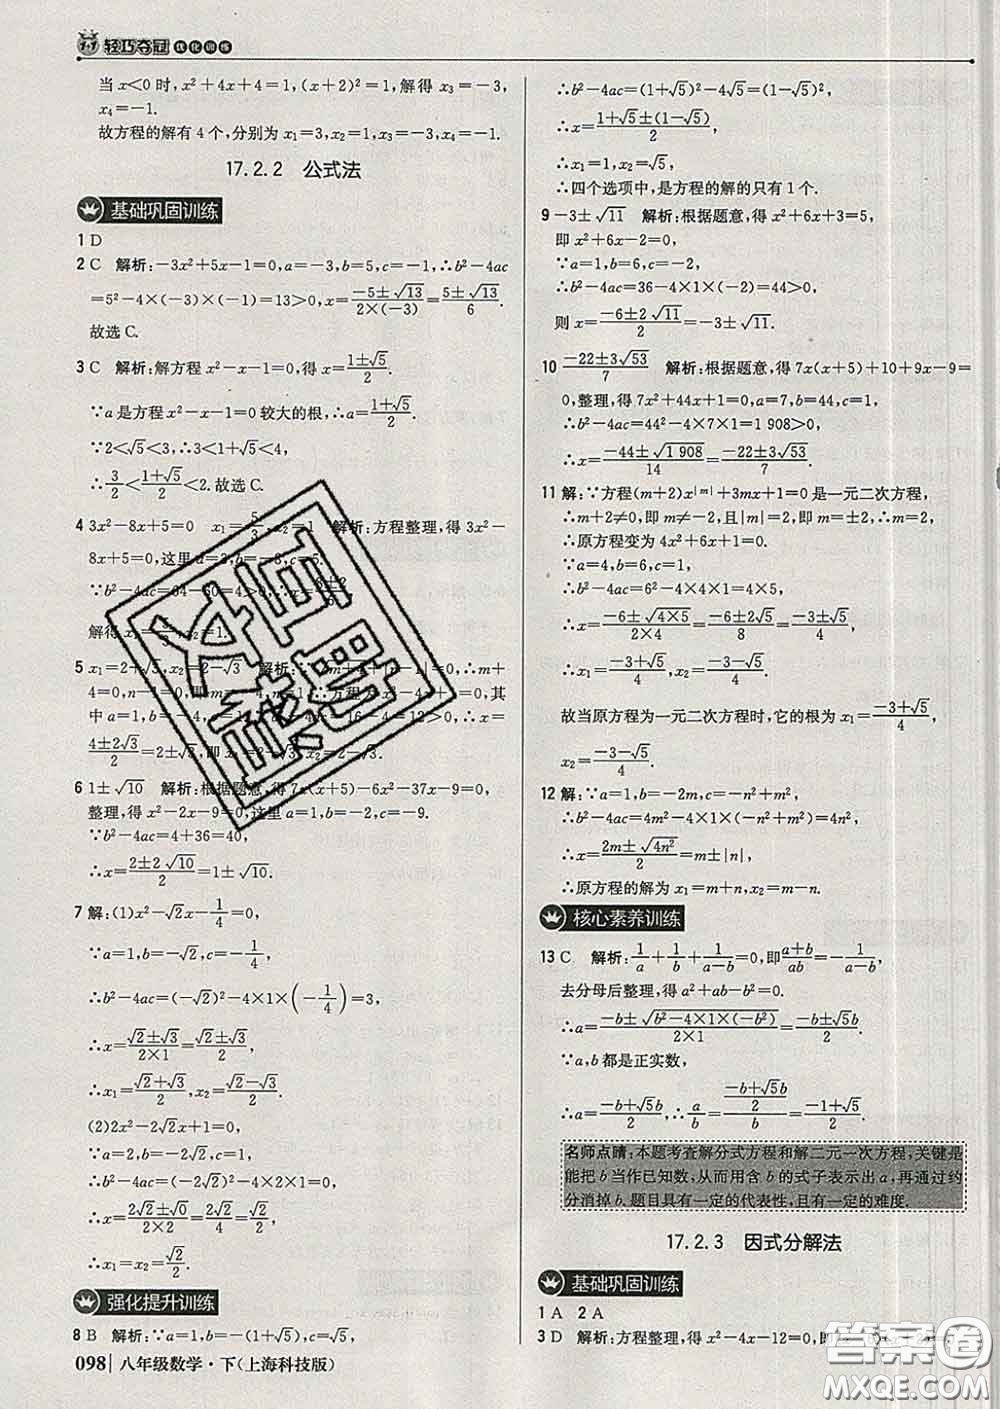 1+1 轻巧夺冠 优化训练
当x<0时,x²+4x+4=1,(x+2)²=1,解得x₃=-3,
x₄=-1.
故方程的解有4个,分别为x₁=3,x₂=1,x₃=-3,x₄=-1.
17.2.2 公式法
基础巩固训练
1 D
2 C 解析:-3x²+5x-1=0,a=-3,b=5,c=-1,∴b²-4ac
=5²-4×(-3)×(-1)=13>0,x=(-5±√13)/(2×(-3))=(5±√13)/6.
故选C.
3 C 解析:解方程x²-x-1=0,得x=(1±√5)/2.
∵a是方程x²-x-1=0较大的根,∴a=(1+√5)/2.
∵2<√5<3,∴3<1+√5<4,
∴3/2<(1+√5)/2<2.故选C.
4 3x²-8x+5=0 x₁=5/3,x₂=1 解析:方程整理,得3x²-
8x+5=0,这里a=3,b=-8,c=5,
∵b²-4ac=64-60=4,∴x=(8±2)/6,
解得x₁= ,x₂=1.
5 x₁=2+√3,x₂=2-√3 解析: m+4 |n-1|=0,∴m+
4=0,n-1=0, m=-4,n=1, 方程为x²-4x+1=0,其
中a=1,b=-4,c=1, -4 =16-4=12>0,∴x=
(4±2√3)/2=2±√3,即x₁=2+√3,x₂=2-√3.
6 1±√10 解析:根据题意,得7x(x+5)-6x²-37x-9=0,
整理,得x²-2x-9=0,这里a=1,b=-2,c=-9.
∵b²-4ac=4+36=40,
∴x=(2±2√10)/2=1±√10.
7 解:(1)x²-√2x-1/4=0,
∵a=1,b=-√2,c=-1/4,
∴b²-4ac=(-√2)²-4×1×(-1/4)=3,
∴x=(√2±√3)/(2×1)=(√2±√3)/2,
∴x₁=(√2+√3)/2,x₂=(√2-√3)/2.
(2)2x²-2√2x+1=0,
∵a=2,b=-2√2,c=1,
∴b²-4ac=(-2√2)²-4×2×1=0,
∴x=(2√2±√0)/(2×2)=(2√2±0)/4,
∴x₁=x₂=√2/2.
强化提升训练
8 B 解析:∵a=1,b=-(1+√5),c=√5,
098 八年级数学·下(上海科技版)
∴b²-4ac=(1+√5)²-4√5=(1-√5)²,
∴x=(1+√5±(1-√5))/2,
∴x₁=1,x₂=√5,
∴四个选项中,是方程的解的只有1个.
9 -3±√11 解析:根据题意,得x²+6x+3=5,
即x²+6x-2=0,
∵a=1,b=6,c=-2,
∴b²-4ac=36-4×1×(-2)=44>0,
则x=(-6±2√11)/2=-3±√11.
10 (-22±3√53)/7 解析:根据题意,得7x(x+5)+10+9x-9=
0,整理,得7x²+44x+1=0,∵a=7,b=44,c=1,
∴b²-4ac=44²-4×7×1=1 908>0,
∴x=(-44±√1 908)/14=(-22±3√53)/7.
11 解:∵方程(m+2)x|m|+3mx+1=0是一元二次方程,
∴m+2≠0,即m≠-2,且|m|=2,即m=±2,∴m=2,
∴原方程变为4x²+6x+1=0,
∵a=4,b=6,c=1,
∴b²-4ac=6²-4×4×1=4×5,
∴x=(-6±√(4×5))/(2×4)=(-6±2√5)/8=(-3±√5)/4,
∴x₁=(-3+√5)/4,x₂=(-3-√5)/4.
故当原方程为一元二次方程时,它的根为x₁=(-3+√5)/4,
x₂=(-3-√5)/4.
12 解:∵a=1,b=-2m,c=m²-n²,
∴b²-4ac=4m²-4×1×(-n²+m²)=4n²,
∴x=(2m±√4n²)/2=m±|n|,
∴原方程的解为x₁=m+n,x₂=m-n.
核心素养训练
13 C 解析:1/a+1/b+1/(a-b)=0,即(a+b)/ab=-1/(a-b),
去分母后整理,得a²+ab-b²=0,
∴a=(-b±√(b²-4×1×(-b²)))/(2×1)=(-b±√5b)/2.
∵a,b都是正实数,
∴a=(-b+√5b)/2,∴a/b=((-b+√5b)/2)/b=(-1+√5)/2.
名师点睛:本题考查解分式方程和解二元一次方程,关键是
能把b当作已知数,从而用含b的式子表示出a,再通过约
分消掉b.题目具有一定的代表性,且有一定的难度.
17.2.3 因式分解法
基础巩固训练
1 A 2 A
3 D 解析:方程整理,得x²-4x-12=0,即
答案圈
MXQE.COM